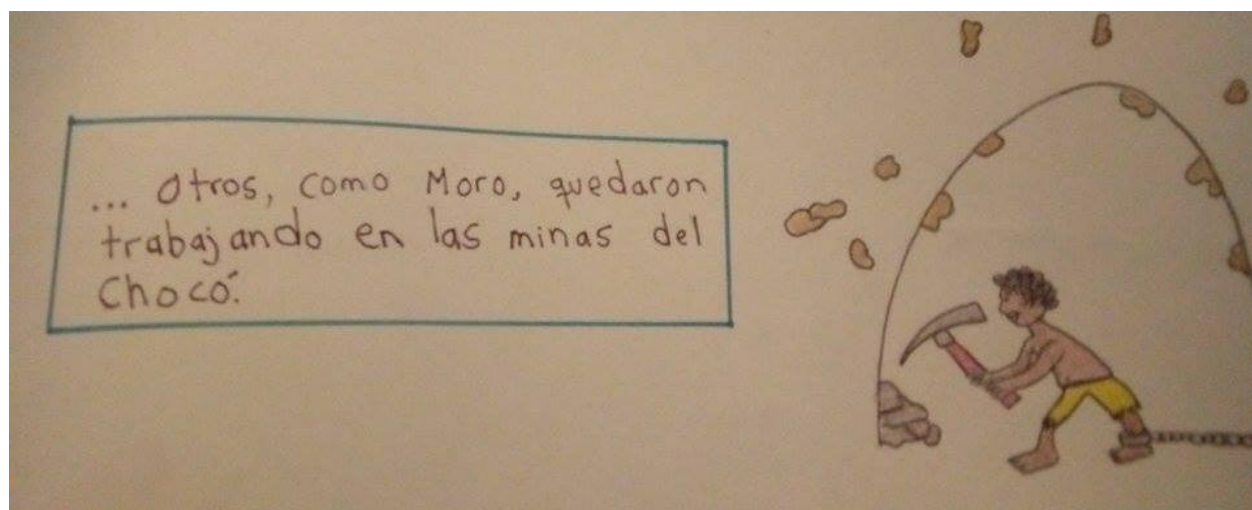 ... Otros, como Moro, quedaron
trabajando en las minas del
Chocó.